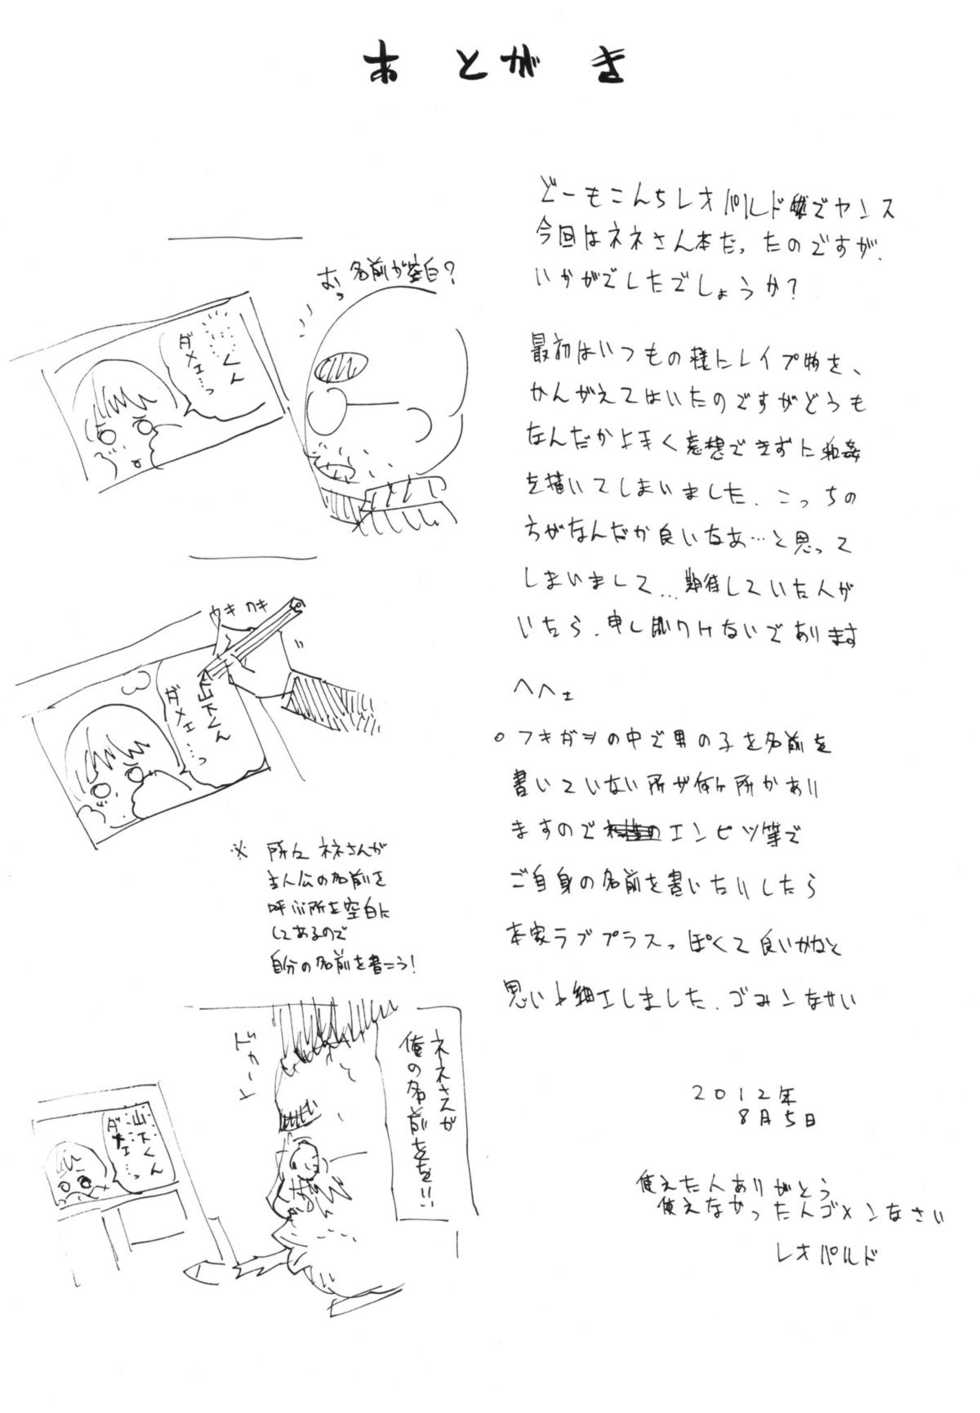 あとがき
どーもこんちレオパルドでヤンス
今回はネネさん本だったのですが、
いかがでしたでしょうか?
最初はいつもの様にレイプ物を、
かんがえてはいたのですがどうも
なんだか上手く妄想できずに和姦
を描いてしまいました。こっちの
方がなんだか良いなあ…と思って
しまいまして…期待していた人が
いたら、申し訳ないであります
ヘヘェ
○フキダシの中で男の子を名前を
書いていない所が何ヶ所かあり
ますのでエンピツ等で
ご自身の名前を書いたりしたら
本家ラブプラスっぽくて良いかなと
思い小細工しました。ゴメンなサい
2012年
8月5日
使えた人ありがとう
使えなかった人ゴメンなさい
レオパルド
おっ名前が空白?
くん
ダメェ…っ
カキカキ
山下くん
ダメェ…っ
※所々ネネさんが
主人公の名前を
呼ぶ所を空白に
してあるので
自分の名前を書こう!
ネネさんが
俺の名前をを!!
山下くん
ダメェ…っ